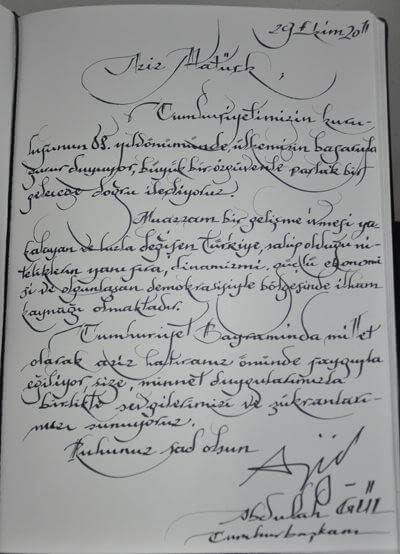 29 Ekim 2011
Aziz Atatürk,
Cumhuriyetimizin kuru-
luşunun 88. yıldönümünde, ülkemizin başarılarıyla
gurur duyuyor, büyük bir özgüvenle parlak bir
geleceğe doğru ilerliyoruz.
Muazzam bir gelişme ivmesi ya-
kalayan ve hızla değişen Türkiye, sahip olduğu ni-
teliklerin yanı sıra, dinamizmi, güçlü ekonomi-
si ve olgunlaşan demokrasisiyle bölgesinde ilham
kaynağı olmaktadır.
Cumhuriyet Bayramında millet
olarak aziz hatıranız önünde saygıyla
eğiliyor, size, minnet duygularımızla
birlikte sevgilerimizi ve şükranları-
mızı sunuyoruz.
Ruhunuz şad olsun
Abdullah Gül
Cumhurbaşkanı